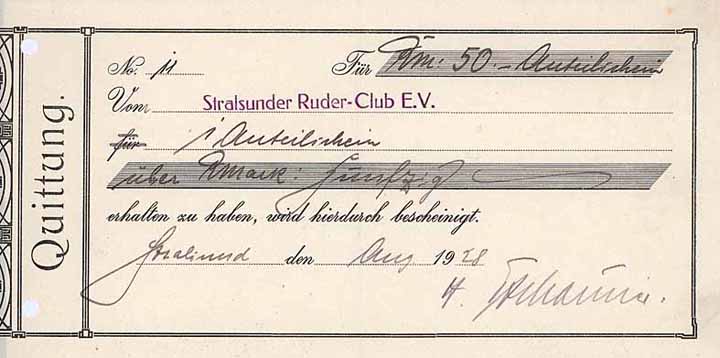 Quittung.
No. 11 Für Rm: 50.- Anteilschein
Von Stralsunder Ruder-Club E.V.
für 1 Anteilschein
über Rmark: Fünfzig
erhalten zu haben, wird hierdurch bescheinigt.
Stralsund den Aug 1928
H.